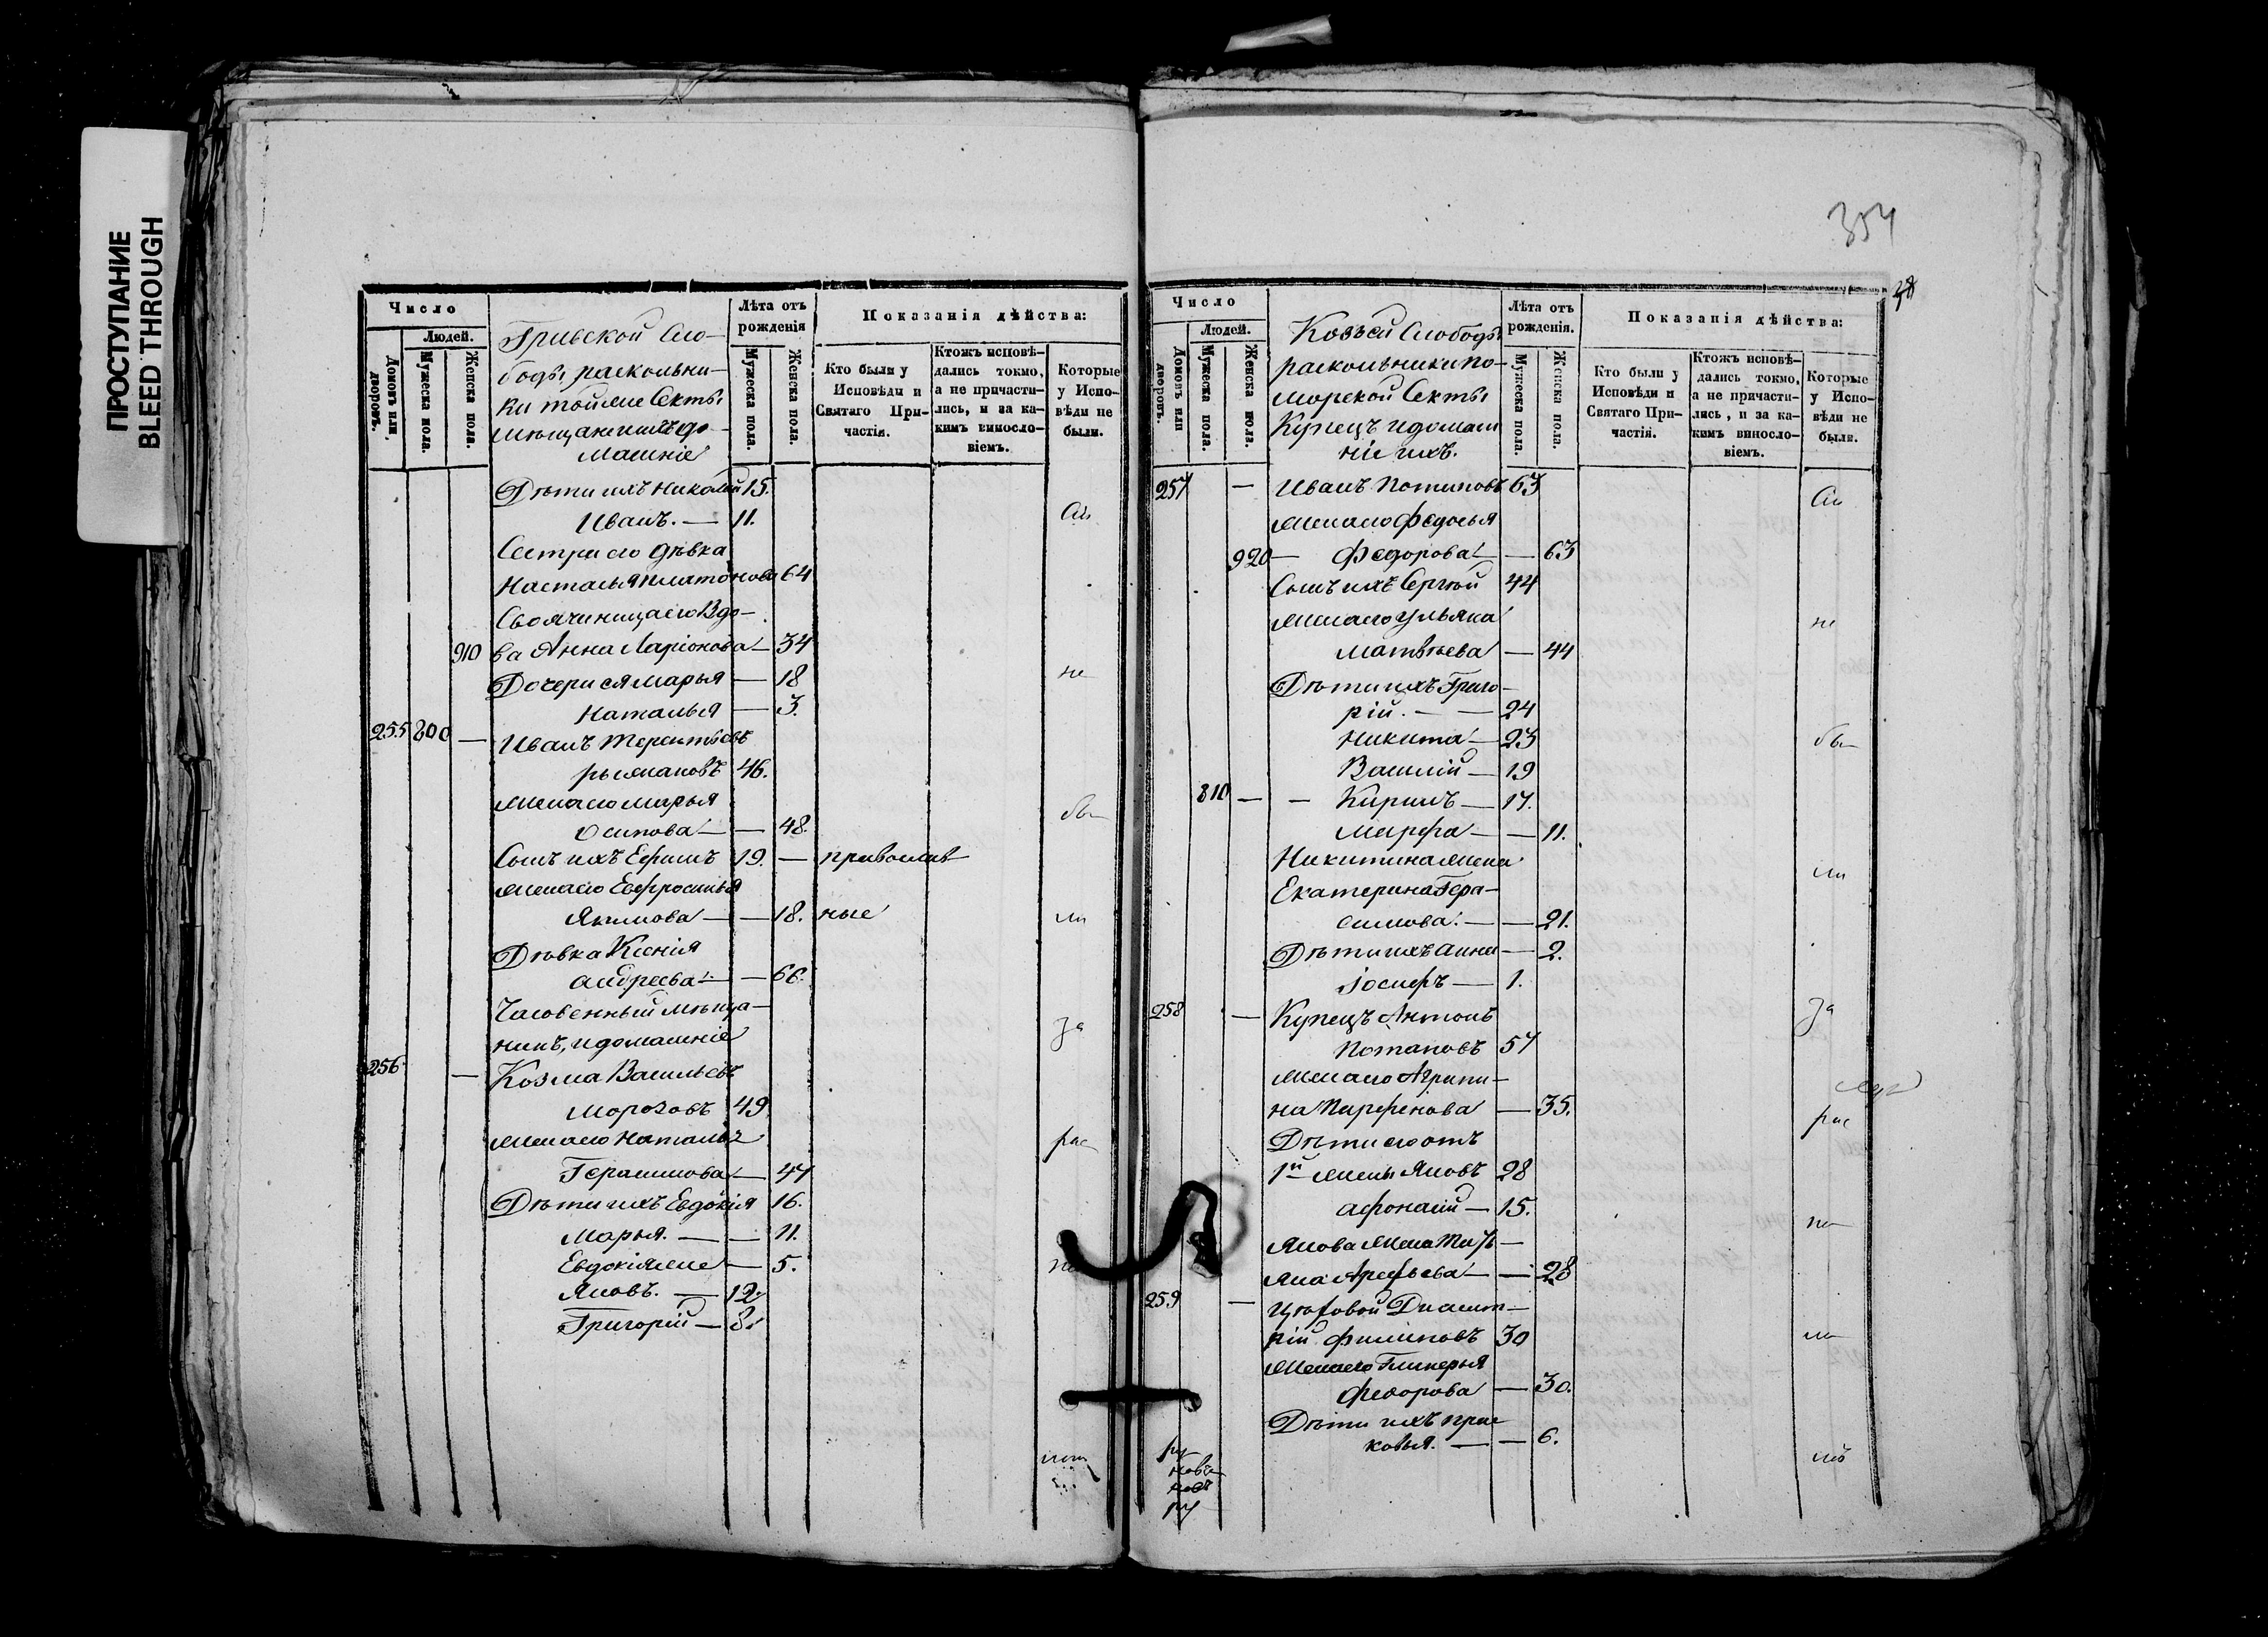 ПРОСТУПАНИЕ
BLEED THROUGH
Число
Людей.
Домовъ или дворовъ.
Мужеска пола.
Женска пола.
Гривской Сло-
боды раскольни-
ки той же Секты
мѣщане и ихъ до-
машніе
Лѣта отъ рожденія
Мужеска пола.
Женска пола.
Показанія дѣйства:
Кто были у Исповѣди и Святаго При-частія.
Ктожъ исповѣ-дались токмо, а не причасти-лись, и за ка-кимъ винносло-віемъ.
Которые у Испо-вѣди не были.
Дѣти ихъ Николай 15.
Иванъ. — 11.
Сестра его дѣвка
Настасья Платонова 64
Своячиница его Вдо-
910 ва Анна Ларіонова — 34
Дочери ея Марья — 18 не
Наталья — 3.
255 800 — Иванъ Терентьевъ
46.
Жена его Марья
Осипова — — 48. бы
Сынъ ихъ Ефимъ 19. — православ
Жена его Евфросинья
Якимова — — 18. ные ли
Дѣвка Ксенія
Андреева — — 66.
Часовенный мѣща-
нинъ, и домашніе за
256 — Козма Васильевъ
Морозовъ 49
Жена его Наталья рас
Герасимова — 47
Дѣти ихъ Евдокія 16.
Марья. — — 11.
Евдокія же — 5.
Яковъ. — 12.
Григорій — 8.
354
Число
Людей.
Домовъ или дворовъ.
Мужеска пола.
Женска пола.
Козьей Слободы
раскольники по-
морской Секты
Купецъ и домаш
ніе ихъ.
Лѣта отъ рожденія.
Мужеска пола.
Женска пола.
Показанія дѣйства:
Кто были у Исповѣди и Святаго При-частія.
Ктожъ исповѣ-дались токмо, а не причасти-лись, и за ка-кимъ винносло-віемъ.
Которые у Испо-вѣди не были.
257 — Иванъ Потаповъ 63
Жена его Федосья
920 — Федорова — — 63
Сынъ ихъ Сергѣй 44
Жена его Ульяна не
Матвѣева — 44
Дѣти ихъ Григо-
рій. — — 24
Никита — 23 бы
Василій — 19
810 — — Кирилъ — 17.
Марфа — — 11.
Никитина жена
Екатерина Гера- ли
симова. — — 21.
Дѣти ихъ Анна — 2.
Іосифъ — 1.
258 — Купецъ Антонъ за
Потаповъ 57
Жена его Агрипи-
на Парфенова — 35.
Дѣти его отъ рас
1й жены Яковъ 28
Афонасій — 15.
Якова жена Тать-
яна Арефьева — — 28
259 — Цеховой Дмит-
рій Филиповъ 30
Жена его Гликерья
Федорова — 30.
Дѣти ихъ Прас
ковья. — — 6.